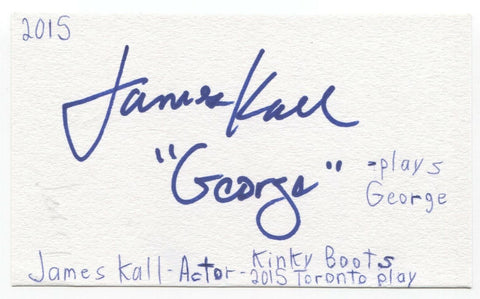 2015
James Kall
"George"
-plays
George
James Kall - Actor - Kinky Boots
2015 Toronto play